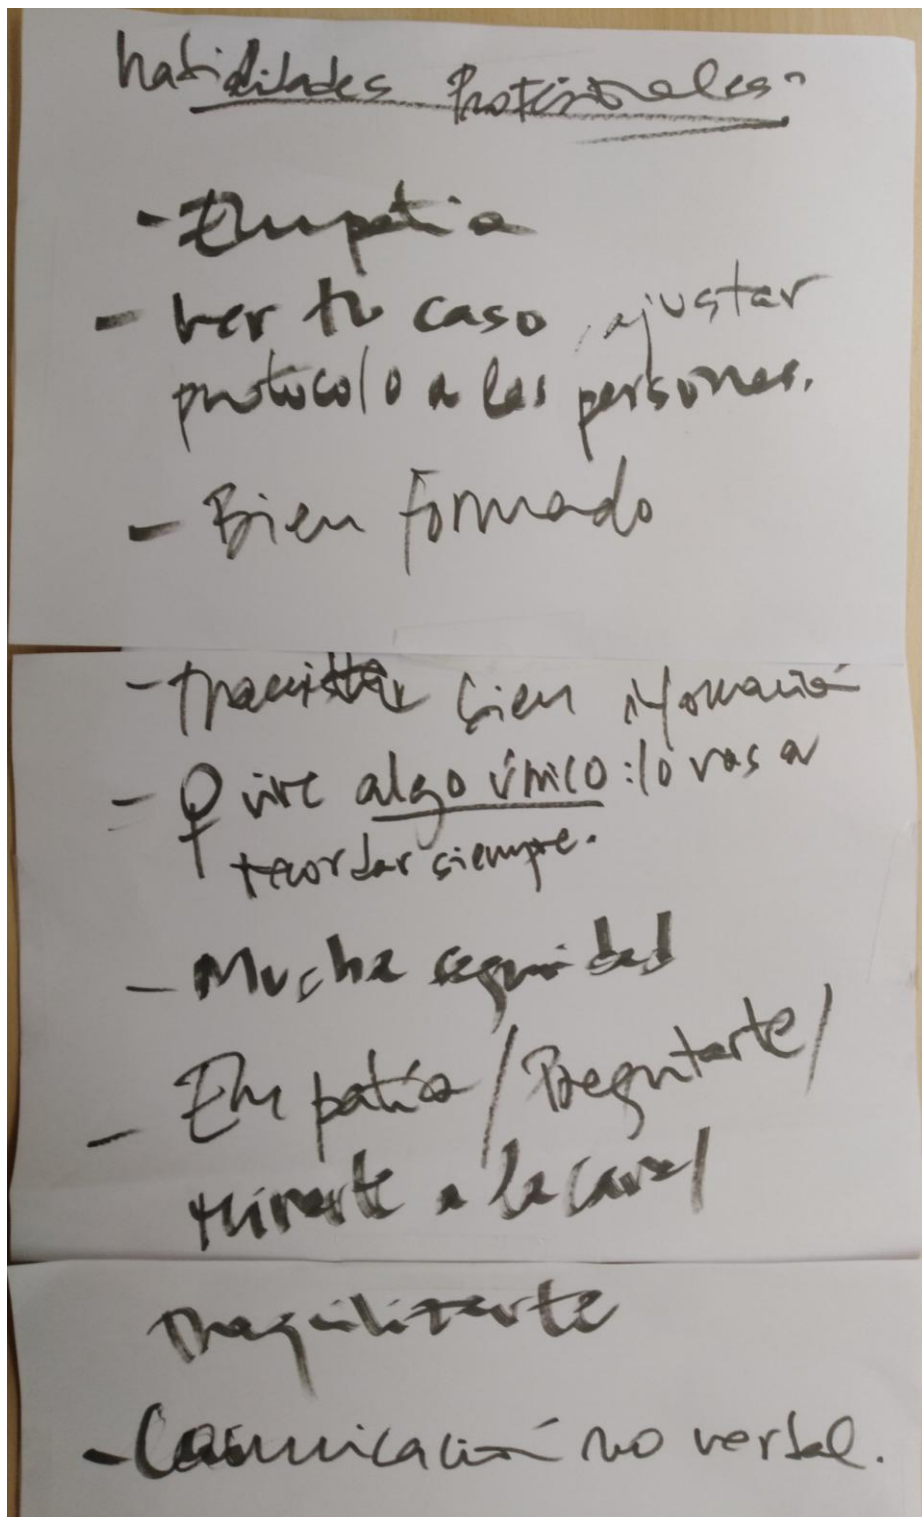 habilidades Profesionales
- Empatia
- ver tu caso, ajustar
protocolo a las personas.
- Bien formado
- tramitir bien información
- ♀ vive algo único: lo vas a
recordar siempre.
- Mucha seguridad
- Empatía / Preguntarte /
mirarte a la cara /
Tranquilizarte
- Comunicación no verbal.